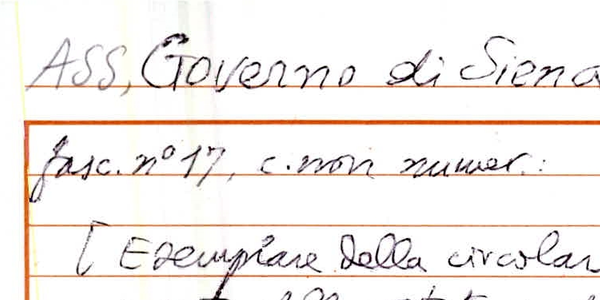 ASS, Governo di Siena
fasc. n° 17, c. non numer.:
[ Esemplare della circolar